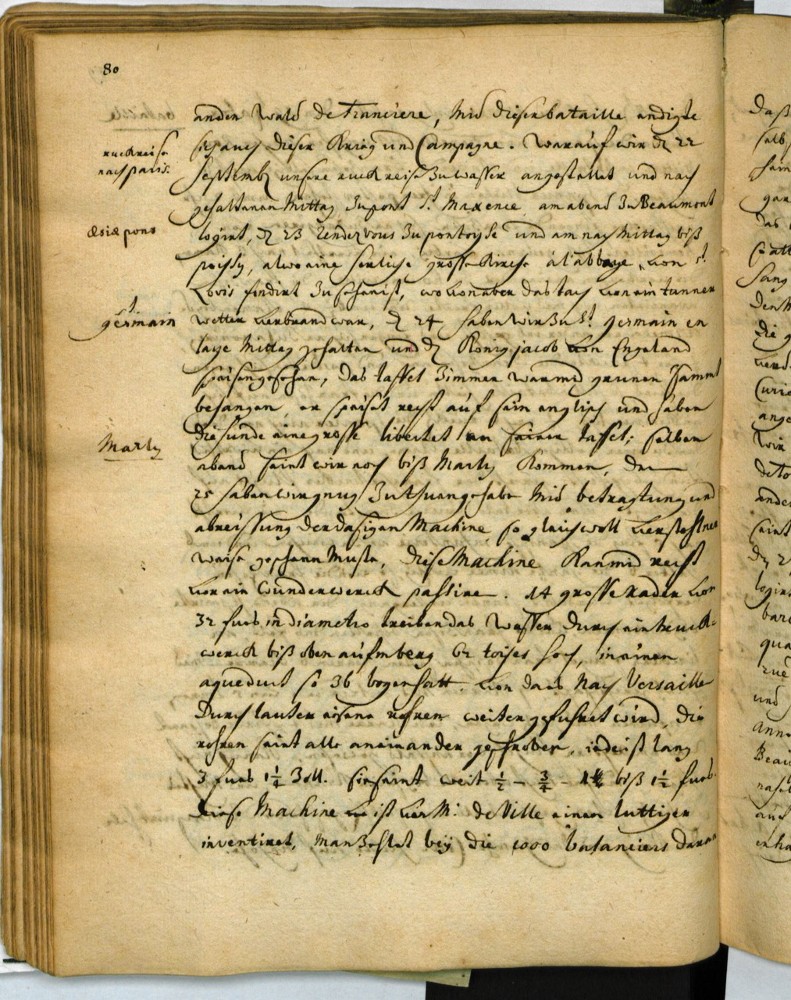 80
an den Wald de Franciere, mid dieser bataille endigte
sich auch dieser Krieg und Campagne. Warauf wir d 22
ruckreise
nach paris.
Septembr unsere ruckreise zu wasser angestellet und nach
gehaltenem Mittag zu pont St. Maxence am abend zu Beaumont
œsiæ pons
logirt, d 23 rendevous zu pontoisse und am nachmittag biß
poissy, alwo eine herliche grosse Kirche à l'abbaye von St.
Lovis findirt zu sehen ist, wovon aber das tach von ein
wetter verbrand war, d 24 haben wir zu St. germain en
St
germain
laye Mittag gehalten und d König jacob von Engeland
speisen gesehen, das taffel zimmer war mid grunen sammt
behangen, er speiset recht auf sein englisch und haben
die hunde eine grosse libertet an seiner taffel; selben
Marly
abend seint wir noch biß Marly kommen, den
25 haben wir gnug zu thuen gehabt mid betrachtung und
abreissung der dasigen Machine, so gleichwoll verstohlner
weise geschehen muste, diese Machine kan mid recht
vor ein wunderwerck passiren. 14 grosse rader von
32 fues in diametro treiben das wasser durch ein truck-
werck biß oben aufm berg 62 toises hoch, in einen
aqueduct so 36 bogen hatt. von dar es nach Versaille
durch lauter eisene rohren weiter gefuhret wird, die
rohren seint alle an einander geschroben, iede ist lang
3 fues 1¼ zoll. sie seint weit ½ - ¾ - 1¼ biß 1½ fues.
diese Machine ist von Mr: de Ville einen luttiger
inventiret, man zehlet bey die 1000 balanciers daran